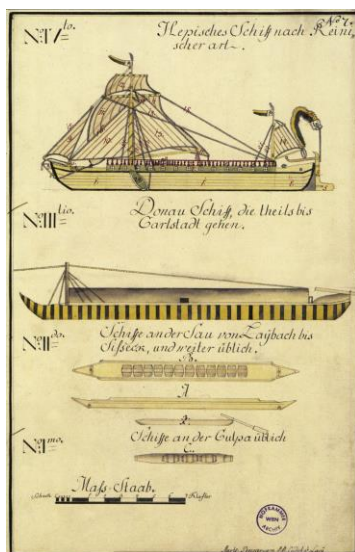 No. 7.
No: IV to.
Hepisches Schiff nach Reini,
scher art.
No: III tio.
Donau Schiff, die theils bis
Carlstadt gehen.
No: II do.
Schiffe an der Sau von Laÿbach bis
Sisseck, und weiter üblich.
B.
A
No: I mo.
Schiffe an der Culpa üblich
C.
Maß=Staab.
Klafter
HOFKAMMER
WIEN
ARCHIV